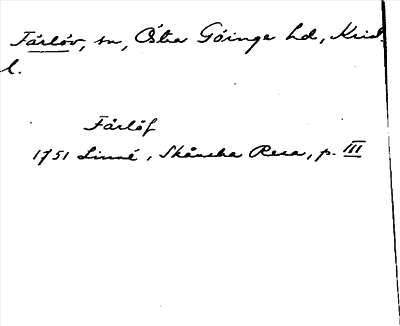 Färlöv, sn, Östra Göinge hd, Krist.
l.
Färlöf
1751 Linné, Skånska Resa, p. III